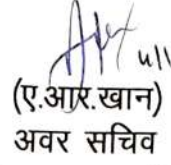 (ए.आर.खान)
अवर सचिव